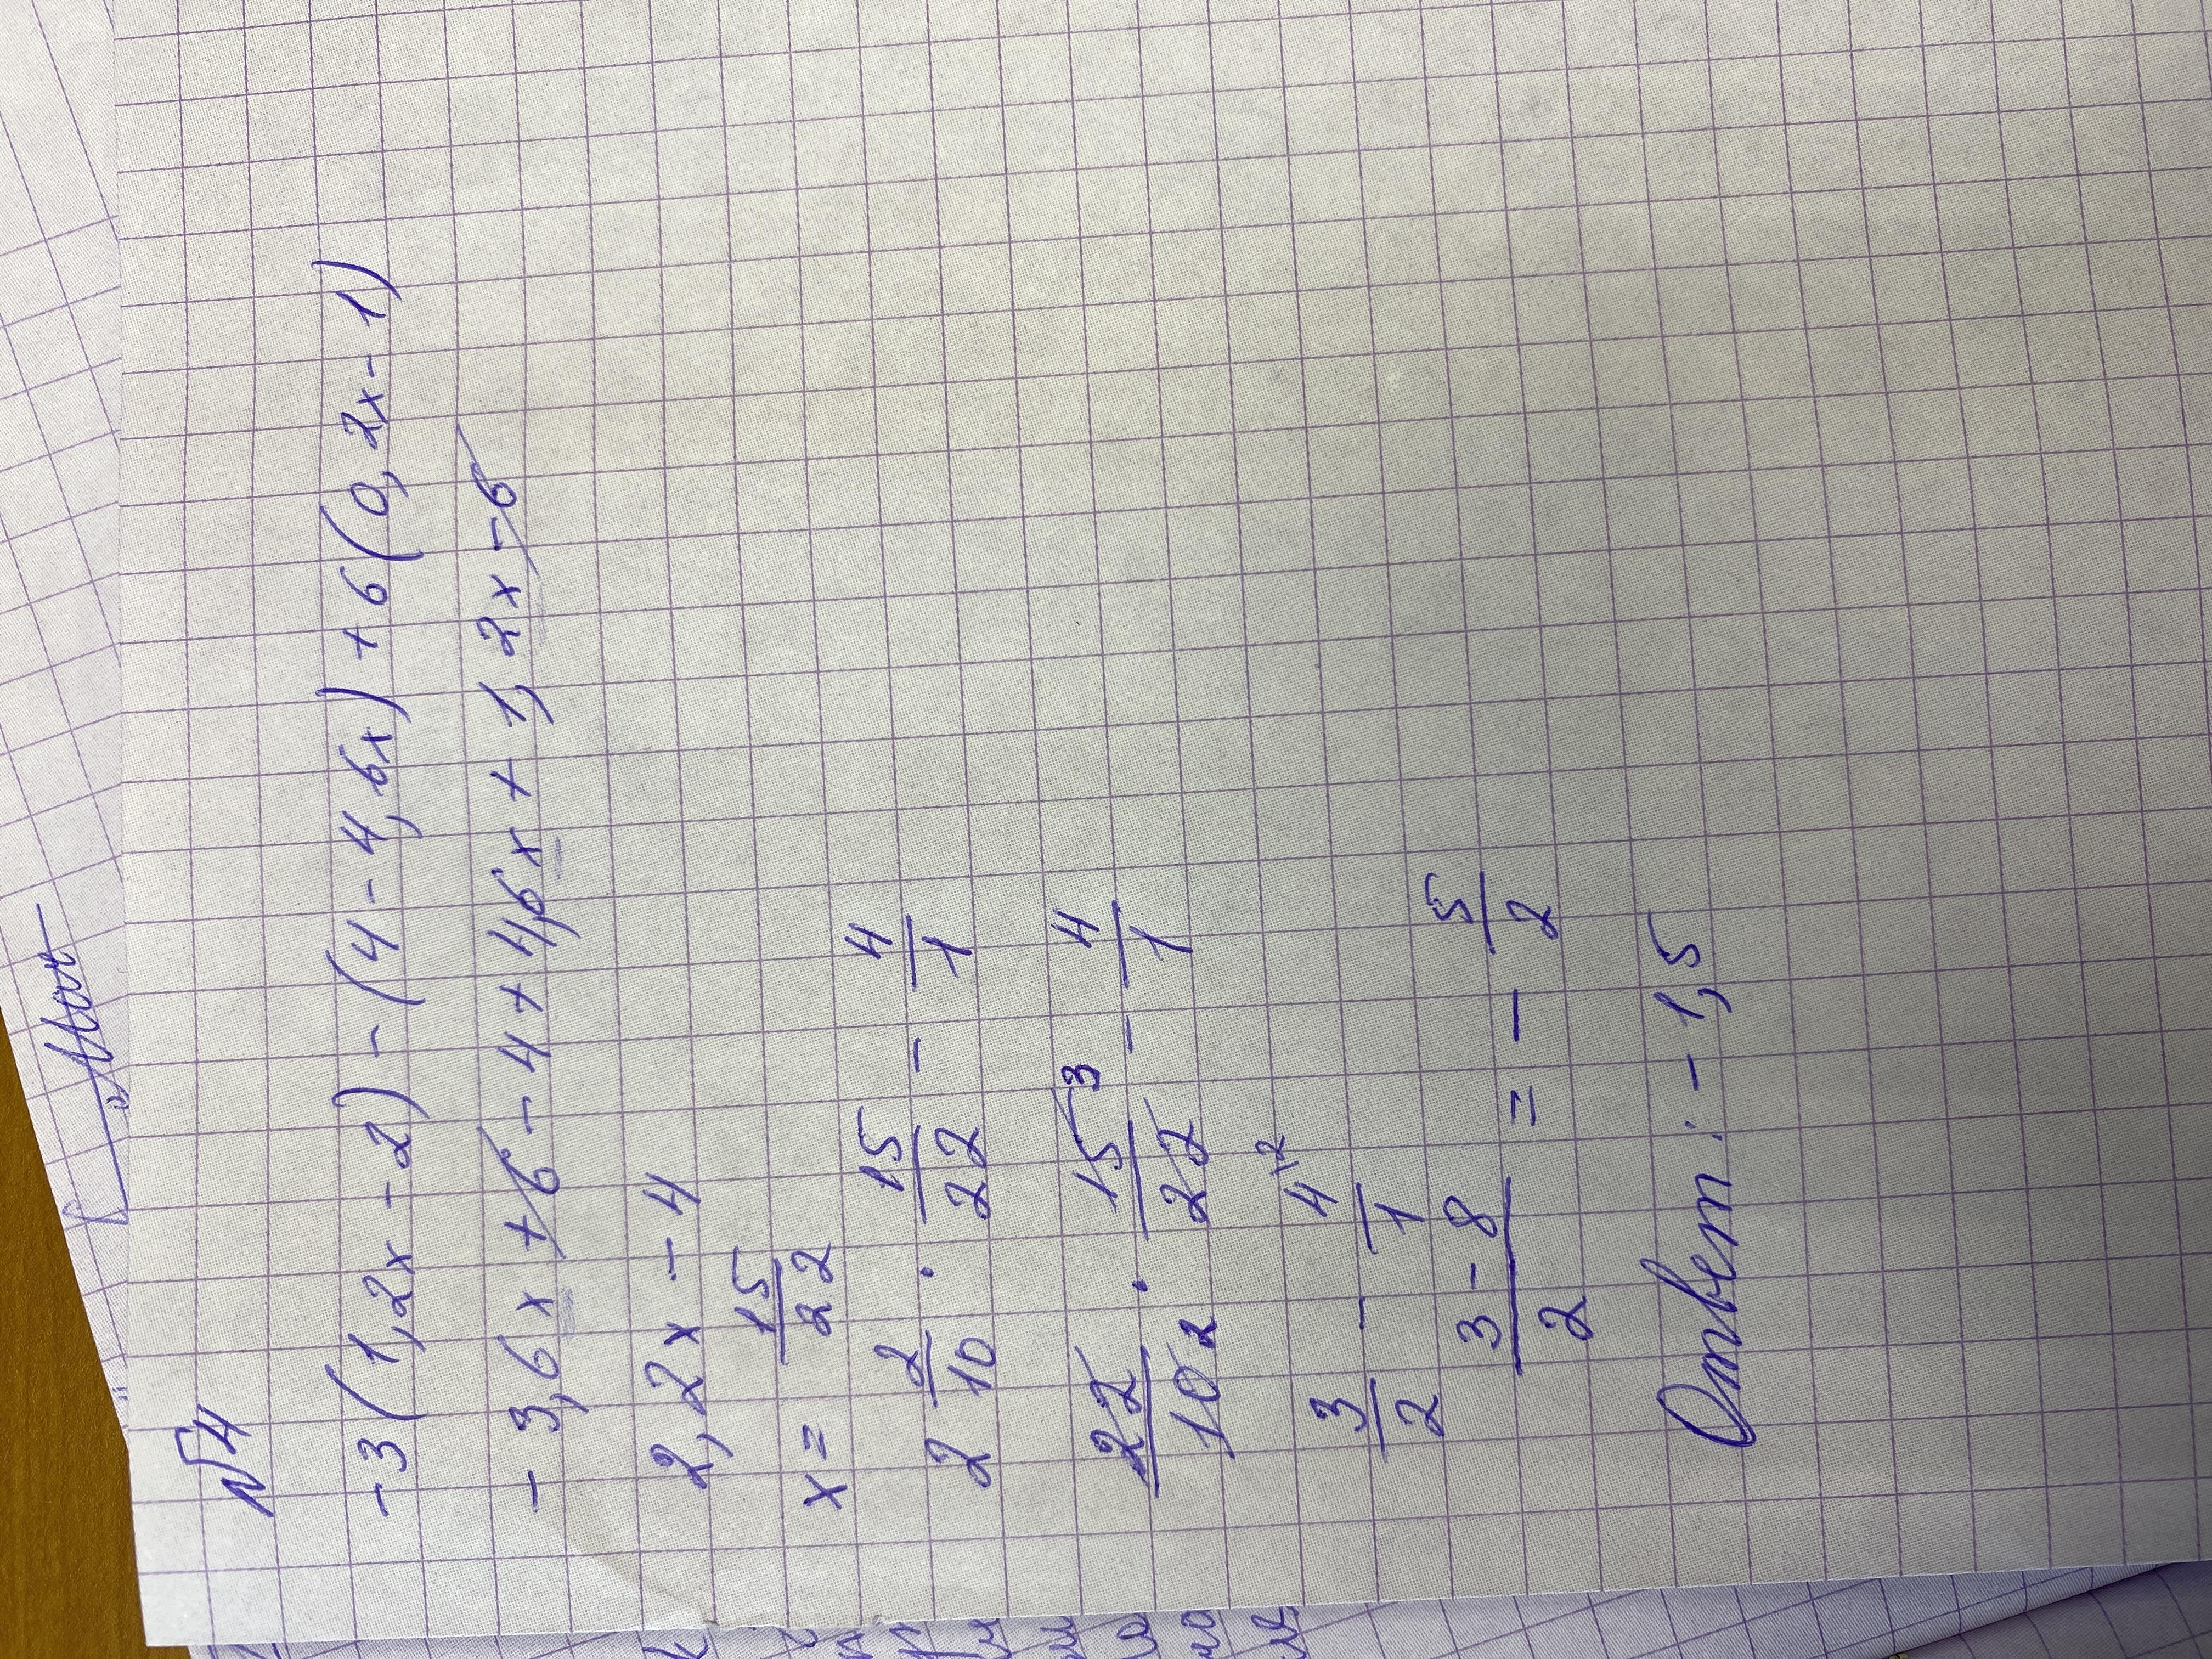 №4
-3(1,2x-2)-(4-4,6x)+6(0,2x-1)
-3,6x+6-4+4,6x+1,2x-6
2,2x-4
x=15/22
2 2/10 · 15/22 - 4/1
22/10 2 · 15 3/22 - 4/1
3/2 - 4\2/1
3-8/2 = - 5/2
Ответ: -1,5